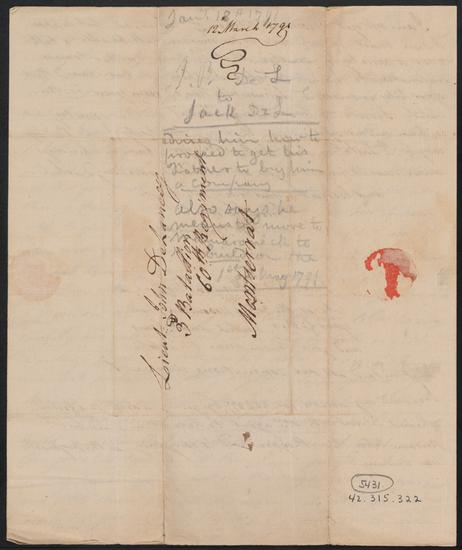 12 March 1791
J. P. De L
to
Jack De L
advising him how to
proceed to get his
Father to buy him
a Company
also says he
means to move to
Mamaroneck to
on the
1st May 1791
Lieut. John DeLancey
3d Batallion
60th Regiment
Montserrat
5431
42.315.322